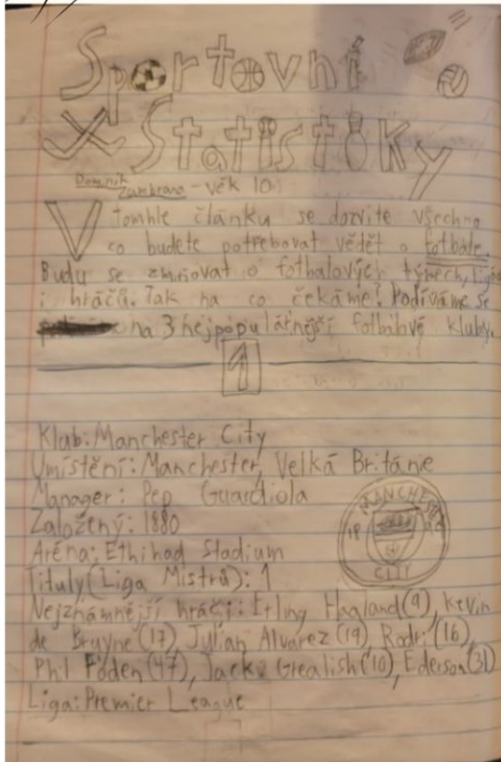 Sportovní
Statistiky
Dominik
Zambrano - věk 10
V tomhle článku se dozvíte všechno
co budete potřebovat vědět o fotbale.
Budu se zmiňovat o fotbalových týmech,
i hráčů. Tak na co čekáme? Podíváme se
na 3 nejpopulárnější fotbalové kluby.
1
Klub: Manchester City
Umístění: Manchester, Velká Británie
Manager: Pep Guardiola
Založený: 1880
Aréna: Ethihad Stadium
Tituly (Liga Mistrů): 1
Nejznámnější hráči: Erling Haaland (9), Kevin
de Bruyne (17), Julian Alvarez (19), Rodri (16),
Phil Foden (47), Jack Grealish (10), Ederson (31)
Liga: Premier League
MANCHE
CITY